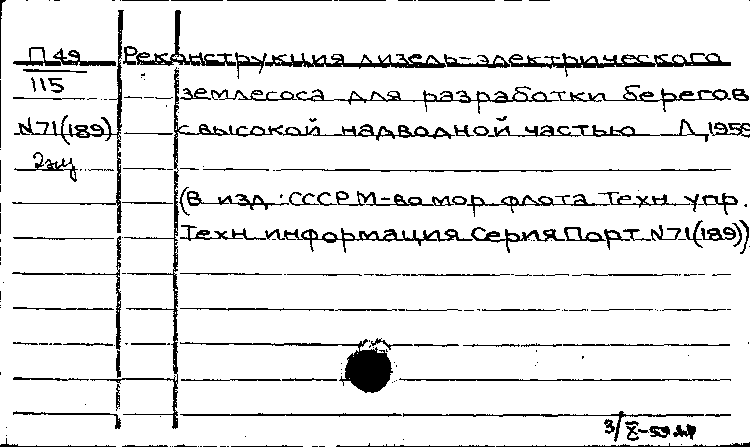 П 49
115
N71(189)
2 экз
Реконструкция дизель-электрического
землесоса для разработки берегов
с высокой надводной частью Л, 1958
(В изд.: СССР М-во мор. флота Техн. упр.
Техн. информация Серия Порт N71(189))
3/X-59